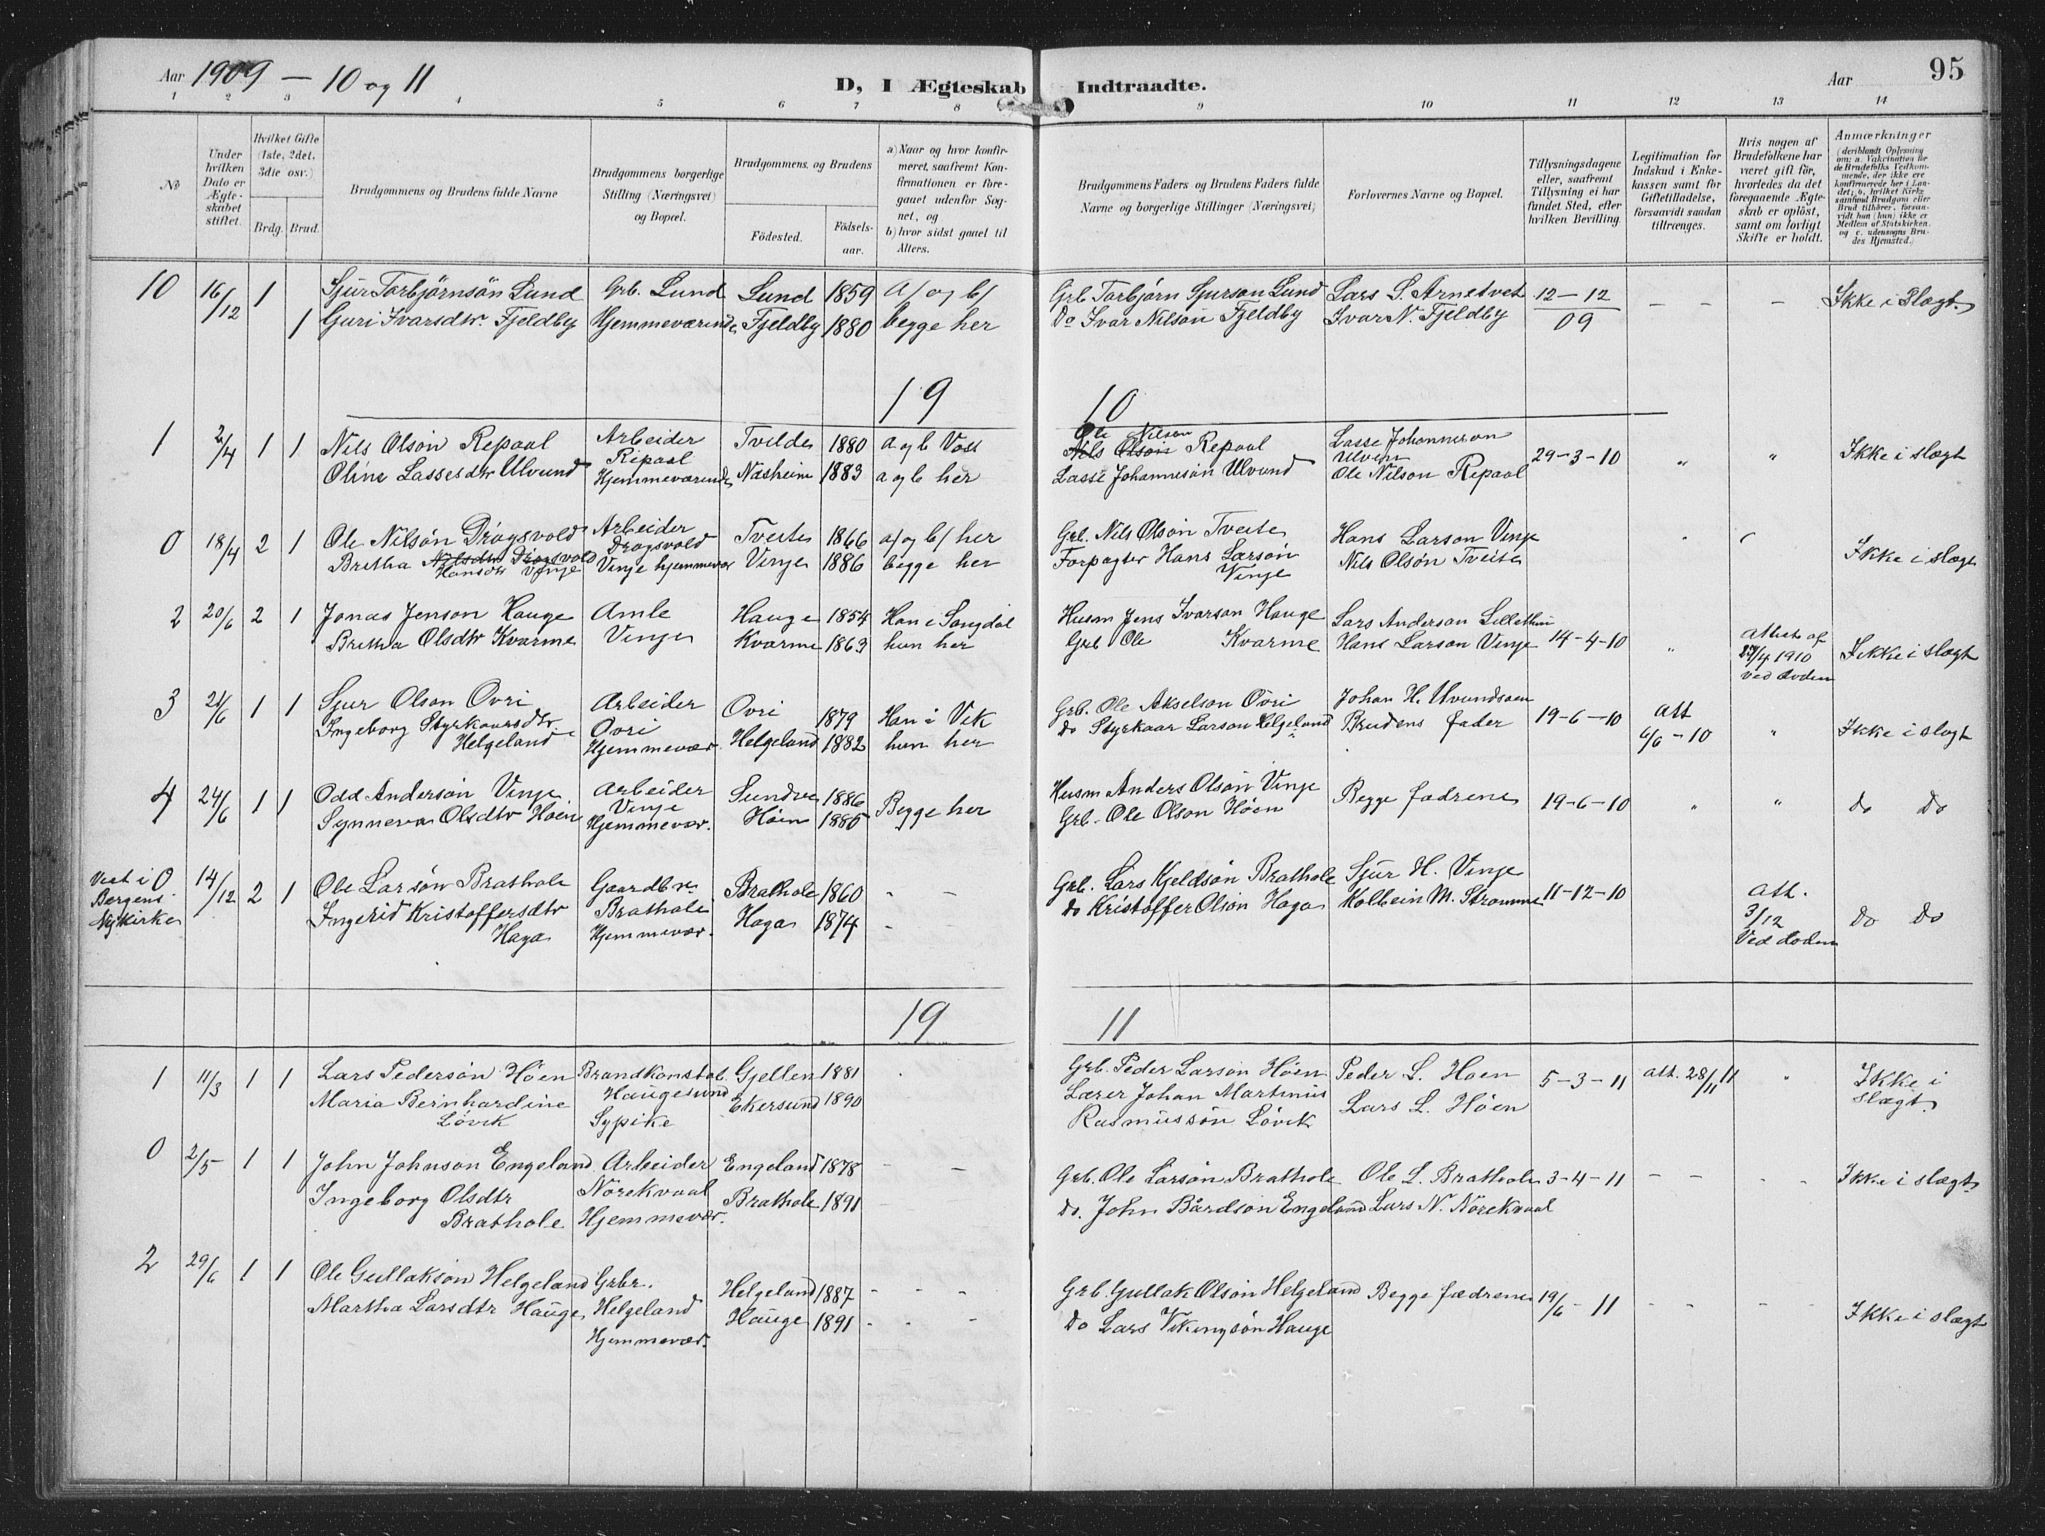 Aar 1909 – 10 og 11
D, I Ægteskab Indtraadte.
Aar
95
1 2 3 4 5 6 7 8 9 10 11 12 13 14
No
Under hvilken Dato er Ægteskabet stiftet.
Hvilket Gifte (1ste, 2det, 3die osv.)
Brdg. Brud.
Brudgommens og Brudens fulde Navne
Brudgommens borgerlige Stilling (Næringsvei) og Bopæl.
Brudgommens og Brudens
Fødested.
Fødselsaar.
a) Naar og hvor konfirmeret, saafremt Konfirmationen er foregaaet udenfor Sognet, og
b) hvor sidst gaaet til Alters.
Brudgommens Faders og Brudens Faders fulde Navne og borgerlige Stillinger (Næringsvei)
Forlovernes Navne og Bopæl.
Tillysningsdagene eller, saafremt Tillysning ei har fundet Sted, efter hvilken Bevilling.
Legitimation for Indskud i Enkekassen samt for Giftetilladelse, forsaavidt saadan tiltrænges.
Hvis nogen af Brudefolkene har været gift før, hvorledes da det foregaaende Ægteskab er opløst, samt om lovligt Skifte er holdt.
Anmærkninger (deriblandt Oplysning om: a. Vakcination for de Brudefolks Vedkommende, der ikke ere konfirmerede her i Landet; b. hvilket Kirkesamfund Brudgom eller Brud tilhører, forsaavidt han (hun) ikke er Medlem af Statskirken, og c. udensogns Brudes Hjemsted.)
10 16/12 1 Sjur Torbjørnsøn Lund Grb. Lund Lund 1859 a/ og b/ Grb Torbjørn Sjurson Lund Lars S. Arnetvet 12–12 – – – Ikke i Slægt.
1 Guri Ivarsdtr. Fjeldby Hjemmeværende Fjeldby 1880 begge her Do Ivar Nilsøn Fjeldby Ivar N. Fjeldby 09
19 10
1 2/4 1 1 Nils Olsøn Repaal Arbeider Repaal Tvilde 1880 a og b Voss Ole Nilson Nils Olson Repaal Lasse Johanneson Ulven 29–3–10 " " Ikke i slægt
Oline Lassesdtr Ulvund Hjemmeværende Næsheim 1883 a og b her Lasse Johannesøn Ulvund Ole Nilson Repaal
0 18/4 2 1 Ole Nilsøn Drøgsvold Arbeider Drøgsvold Tveite 1866 a/ og b/ her Grb. Nils Olsøn Tveite Hans Larson Vinje Ikke i slægt
Britha Nilsdtr Drøgsvold Hansdtr Vinje Vinje hjemmevær Vinje 1886 begge her Forpagter Hans Larsøn Vinje Nils Olsøn Tveite
2 20/6 2 1 Jonas Jenson Hauge Amle Hauge 1854 Han i Sogndal Husm Jens Ivarson Hauge Lars Anderson Lillethun 14–4–10 " Attest af 27/4 1910 ved døden Ikke i slægt
Britha Olsdtr Kvarme Vinje Kvarme 1863 hun her Grb Ole Kvarme Hans Larson Vinje
3 21/6 1 1 Sjur Olson Ovri Arbeider Ovri 1879 Han i Vik Grb. Ole Akselson Övri Johan H. Uvundsaen 19–6–10 att 6/6–10 " Ikke i slægt
Ingeborg Styrkaarsdtr Helgeland Ovri Hjemmevær Helgeland 1882 hun her Do Styrkaar Larson Helgeland Brudens fader
4 24/6 1 1 Odd Andersøn Vinje Arbeider Vinje Sundve 1886 Begge her Husm Anders Olsøn Vinje Begge fædrene 19–6–10 " " Do Do
Synneva Olsdtr Høien Hjemmevær. Høien 1885 Grb. Ole Olson Höen
Viet i Bergens Nykirke 0 14/12 2 1 Ole Larsøn Brathole Gaardbr. Brathole Brathole 1860 – – Grb. Lars Kjeldsøn Brathole Sjur H. Vinje 11–12–10 att. 3/12 Ved døden Do Do
Ingerid Kristoffersdtr Haga Hjemmevær. Haga 1874 – Do Kristoffer Olson Haga Kolbein M. Strømme
19 11
1 11/3 1 1 Lars Pedersøn Høen Brandkonstab. Haugesund Gjellen 1881 Grb. Peder Larsøn Høen Peder L. Høen 5–3–11 att. 28/11 11 " Ikke i slægt.
Maria Bernhardine Løvik Sypike Ekersund 1890 Lærer Johan Martinus Rasmussøn Løvik Lars L. Høen
0 2/5 1 1 John Johnson Engeland Arbeider Engeland 1878 – – Grb. Ole Larsøn Brathole Ole L. Brathole 3–4–11 – – – – Ikke i slægt
Ingeborg Olsdtr Brathole Nörekvaal Hjemmevær. Brathole 1891 Do. John Bårdson Engeland Lars N. Nörekvaal
2 29/6 1 1 Ole Gullaksøn Helgeland Grbr. Helgeland 1887 – – – Grb. Gullak Olsøn Helgeland Begge fædrene 19/6–11 – – – – Ikke i slægt
Martha Larsdtr Hauge Helgeland Hjemmevær. Hauge 1891 – – – Do Lars Vikingsøn Hauge